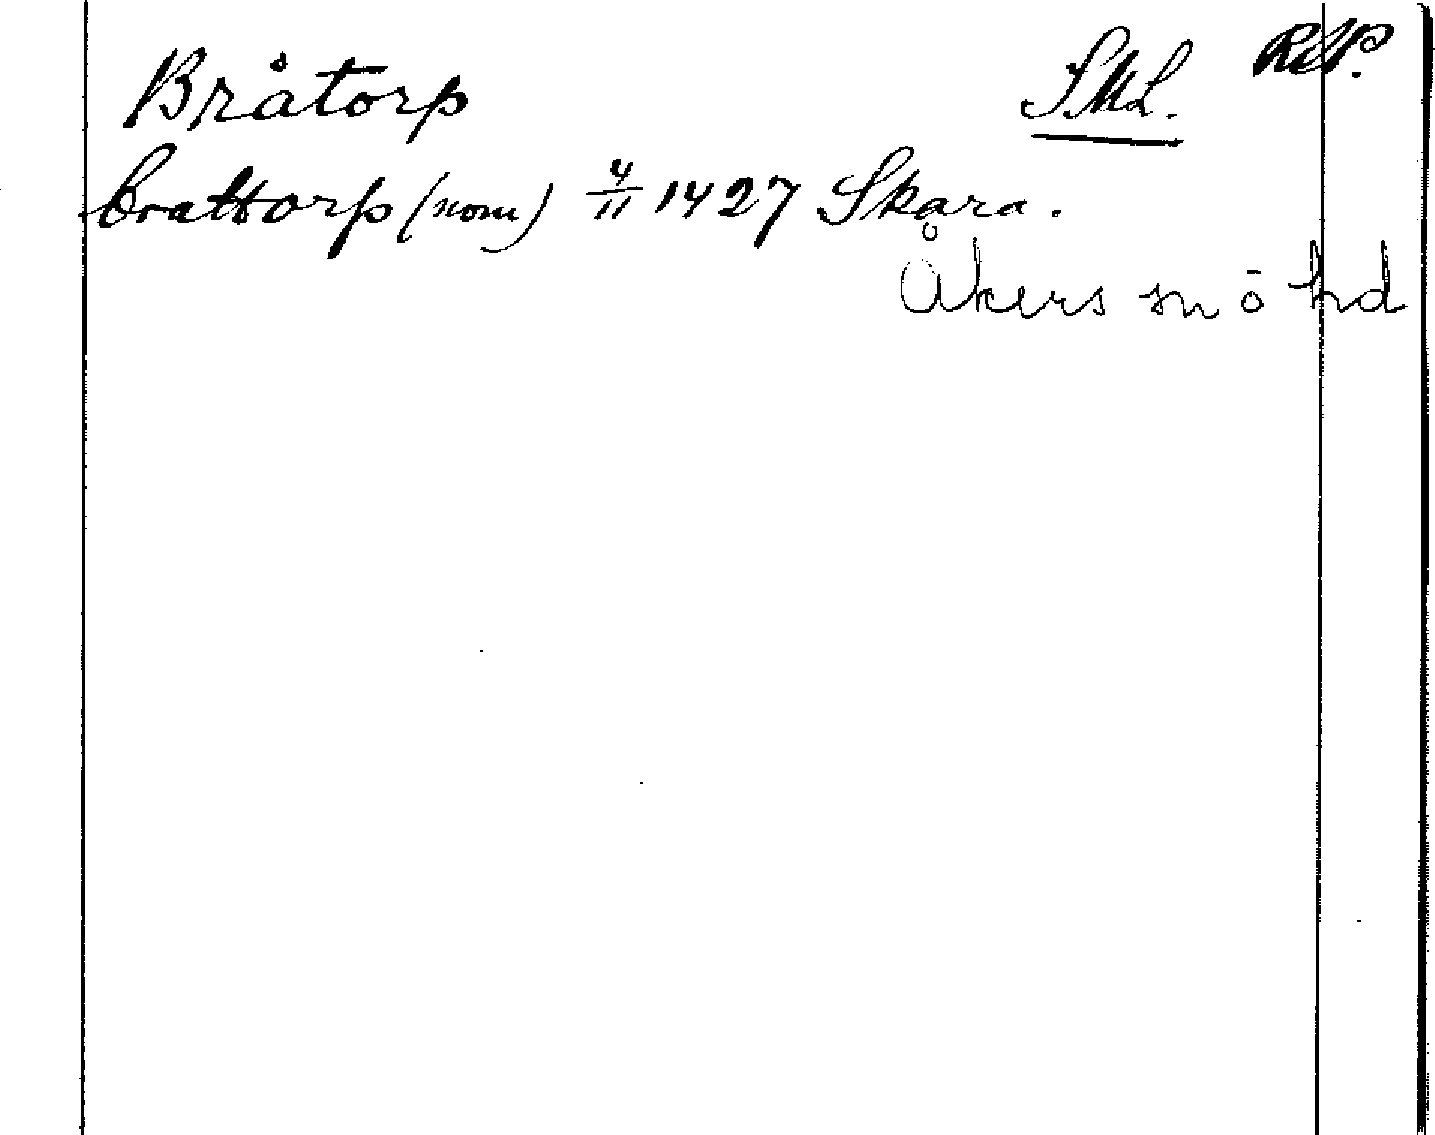 Bråtorp SML. Rep.
brattorp (nom) 4/11 1427 Skara.
Åkers sn ö hd